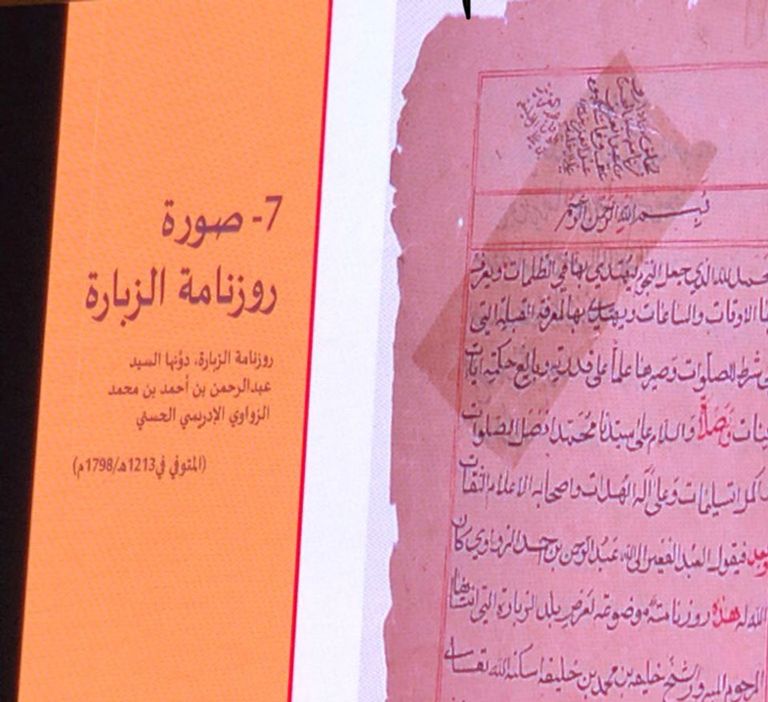 7- صورة
روزنامة الزبارة
روزنامة الزبارة، دوّنها السيد
عبدالرحمن بن أحمد بن محمد
الزواوي الإدريسي الحسني
(المتوفي في1213هـ/1798م)
بسم الله الرحمن الرحيم
لله الذي جعل النجوم ليهتدي بها في الظلمات ويعرف
الاوقات والساعات ويهتدي بها لمعرفة القبلة التي
شرط للصلوات وصيرها علماً على قدرته وبالغ حكمته ايات
والسلام على سيدنا محمد افضل الصلوات
اكمل التسليمات وعلى آله الهدات واصحابه الاعلام الثقات
وبعد فيقول العبد الفقير الى الله عبد الرحمن بن احمد الزواوي كان
الله له هذه روزنامة موضوعة لعرض بلد الزبارة التي
المرحوم المبرور الشيخ خليفه بن محمد بن خليفه اسكنه الله تعالى